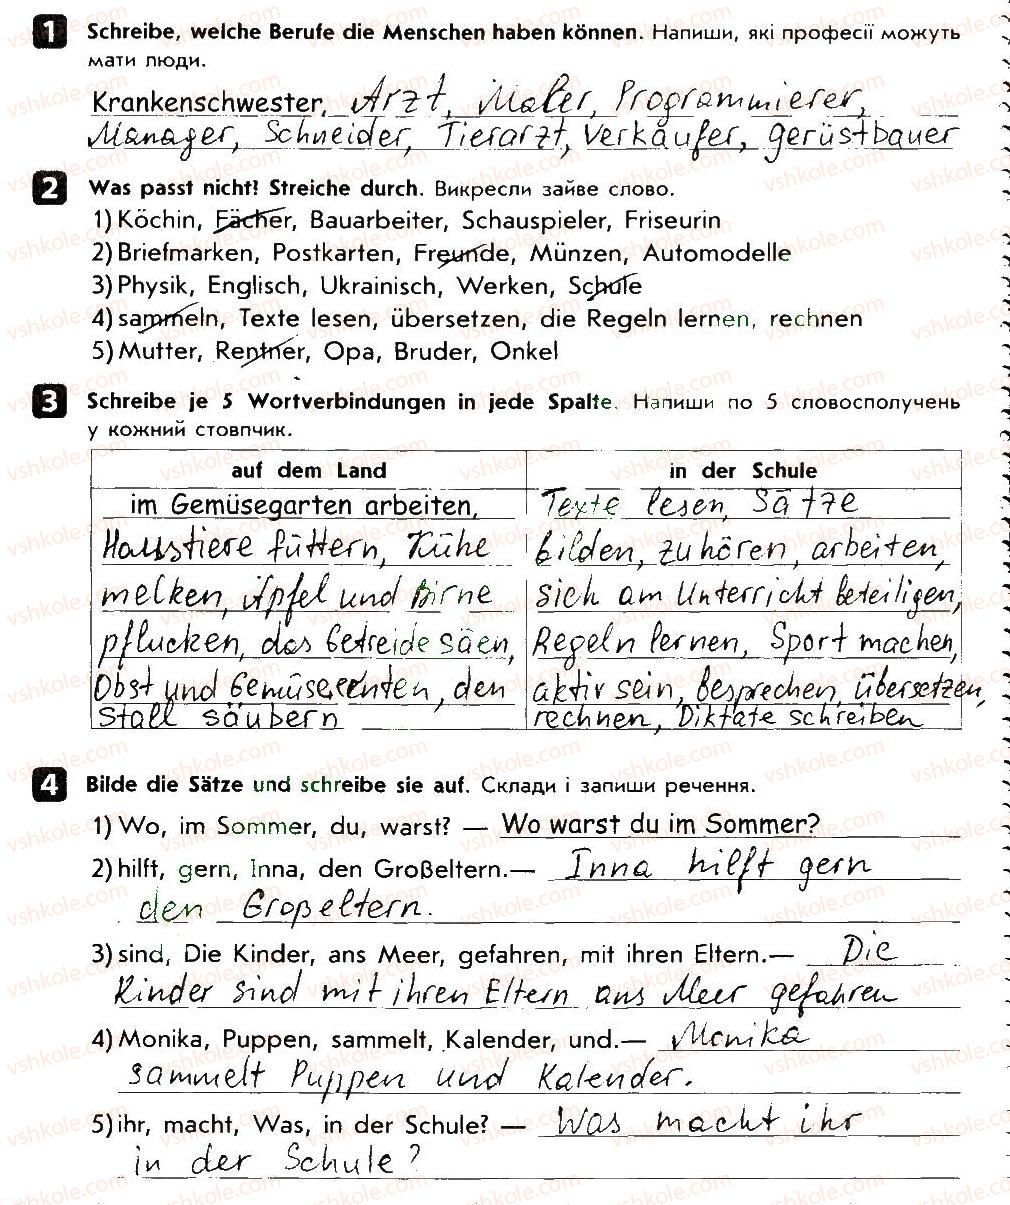 1 Schreibe, welche Berufe die Menschen haben können. Напиши, які професії можуть
мати люди.
Krankenschwester, Arzt, Maler, Programmierer,
Manager, Schneider, Tierarzt, Verkäufer, gerüstbauer
2 Was passt nicht? Streiche durch. Викресли зайве слово.
1) Köchin, Fächer, Bauarbeiter, Schauspieler, Friseurin
2) Briefmarken, Postkarten, Freunde, Münzen, Automodelle
3) Physik, Englisch, Ukrainisch, Werken, Schule
4) sammeln, Texte lesen, übersetzen, die Regeln lernen, rechnen
5) Mutter, Rentner, Opa, Bruder, Onkel
3 Schreibe je 5 Wortverbindungen in jede Spalte. Напиши по 5 словосполучень
у кожний стовпчик.
auf dem Land
im Gemüsegarten arbeiten,
Haustiere füttern, Kühe
melken, Äpfel und Birne
pflucken, das Getreide säen,
Obst und Gemüse ernten, den
Stall säubern
in der Schule
Texte lesen, Sätze
bilden, zuhören, arbeiten,
sich am Unterricht beteiligen,
Regeln lernen, Sport machen,
aktiv sein, besprechen, übersetzen,
rechnen, Diktate schreiben
4 Bilde die Sätze und schreibe sie auf. Склади і запиши речення.
1) Wo, im Sommer, du, warst? — Wo warst du im Sommer?
2) hilft, gern, Inna, den Großeltern.— Inna hilft gern
den Großeltern.
3) sind, Die Kinder, ans Meer, gefahren, mit ihren Eltern.— Die
Kinder sind mit ihren Eltern ans Meer gefahren
4) Monika, Puppen, sammelt, Kalender, und.— Monika
sammelt Puppen und Kalender.
5) ihr, macht, Was, in der Schule? — Was macht ihr
in der Schule?